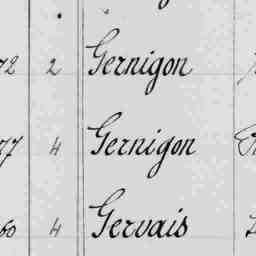 72 2 Gernigon
77 4 Gernigon
60 4 Gervais